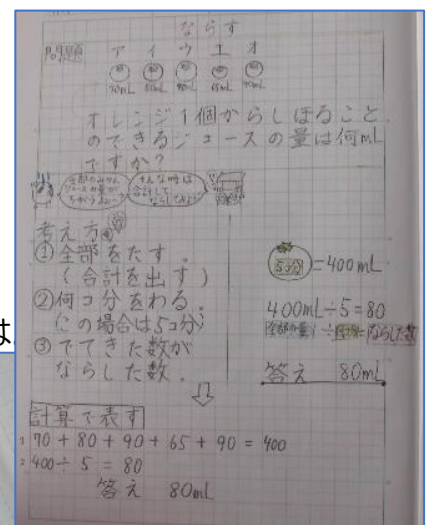 ならす
問題 ア イ ウ エ オ
70mL 80mL 90mL 65mL 90mL
オレンジ1個からしぼること
のできるジュースの量は何mL
ですか?
考え方
①全部をたす。
(合計を出す)
②何コ分をわる。
(この場合は5コ分)
③でてきた数が
ならした数。
5コ分=400mL
400mL÷5=80
全部の量÷何コ分=ならした数
答え 80mL
計算で表す
70+80+90+65+90=400
400÷5=80
答え 80mL
は